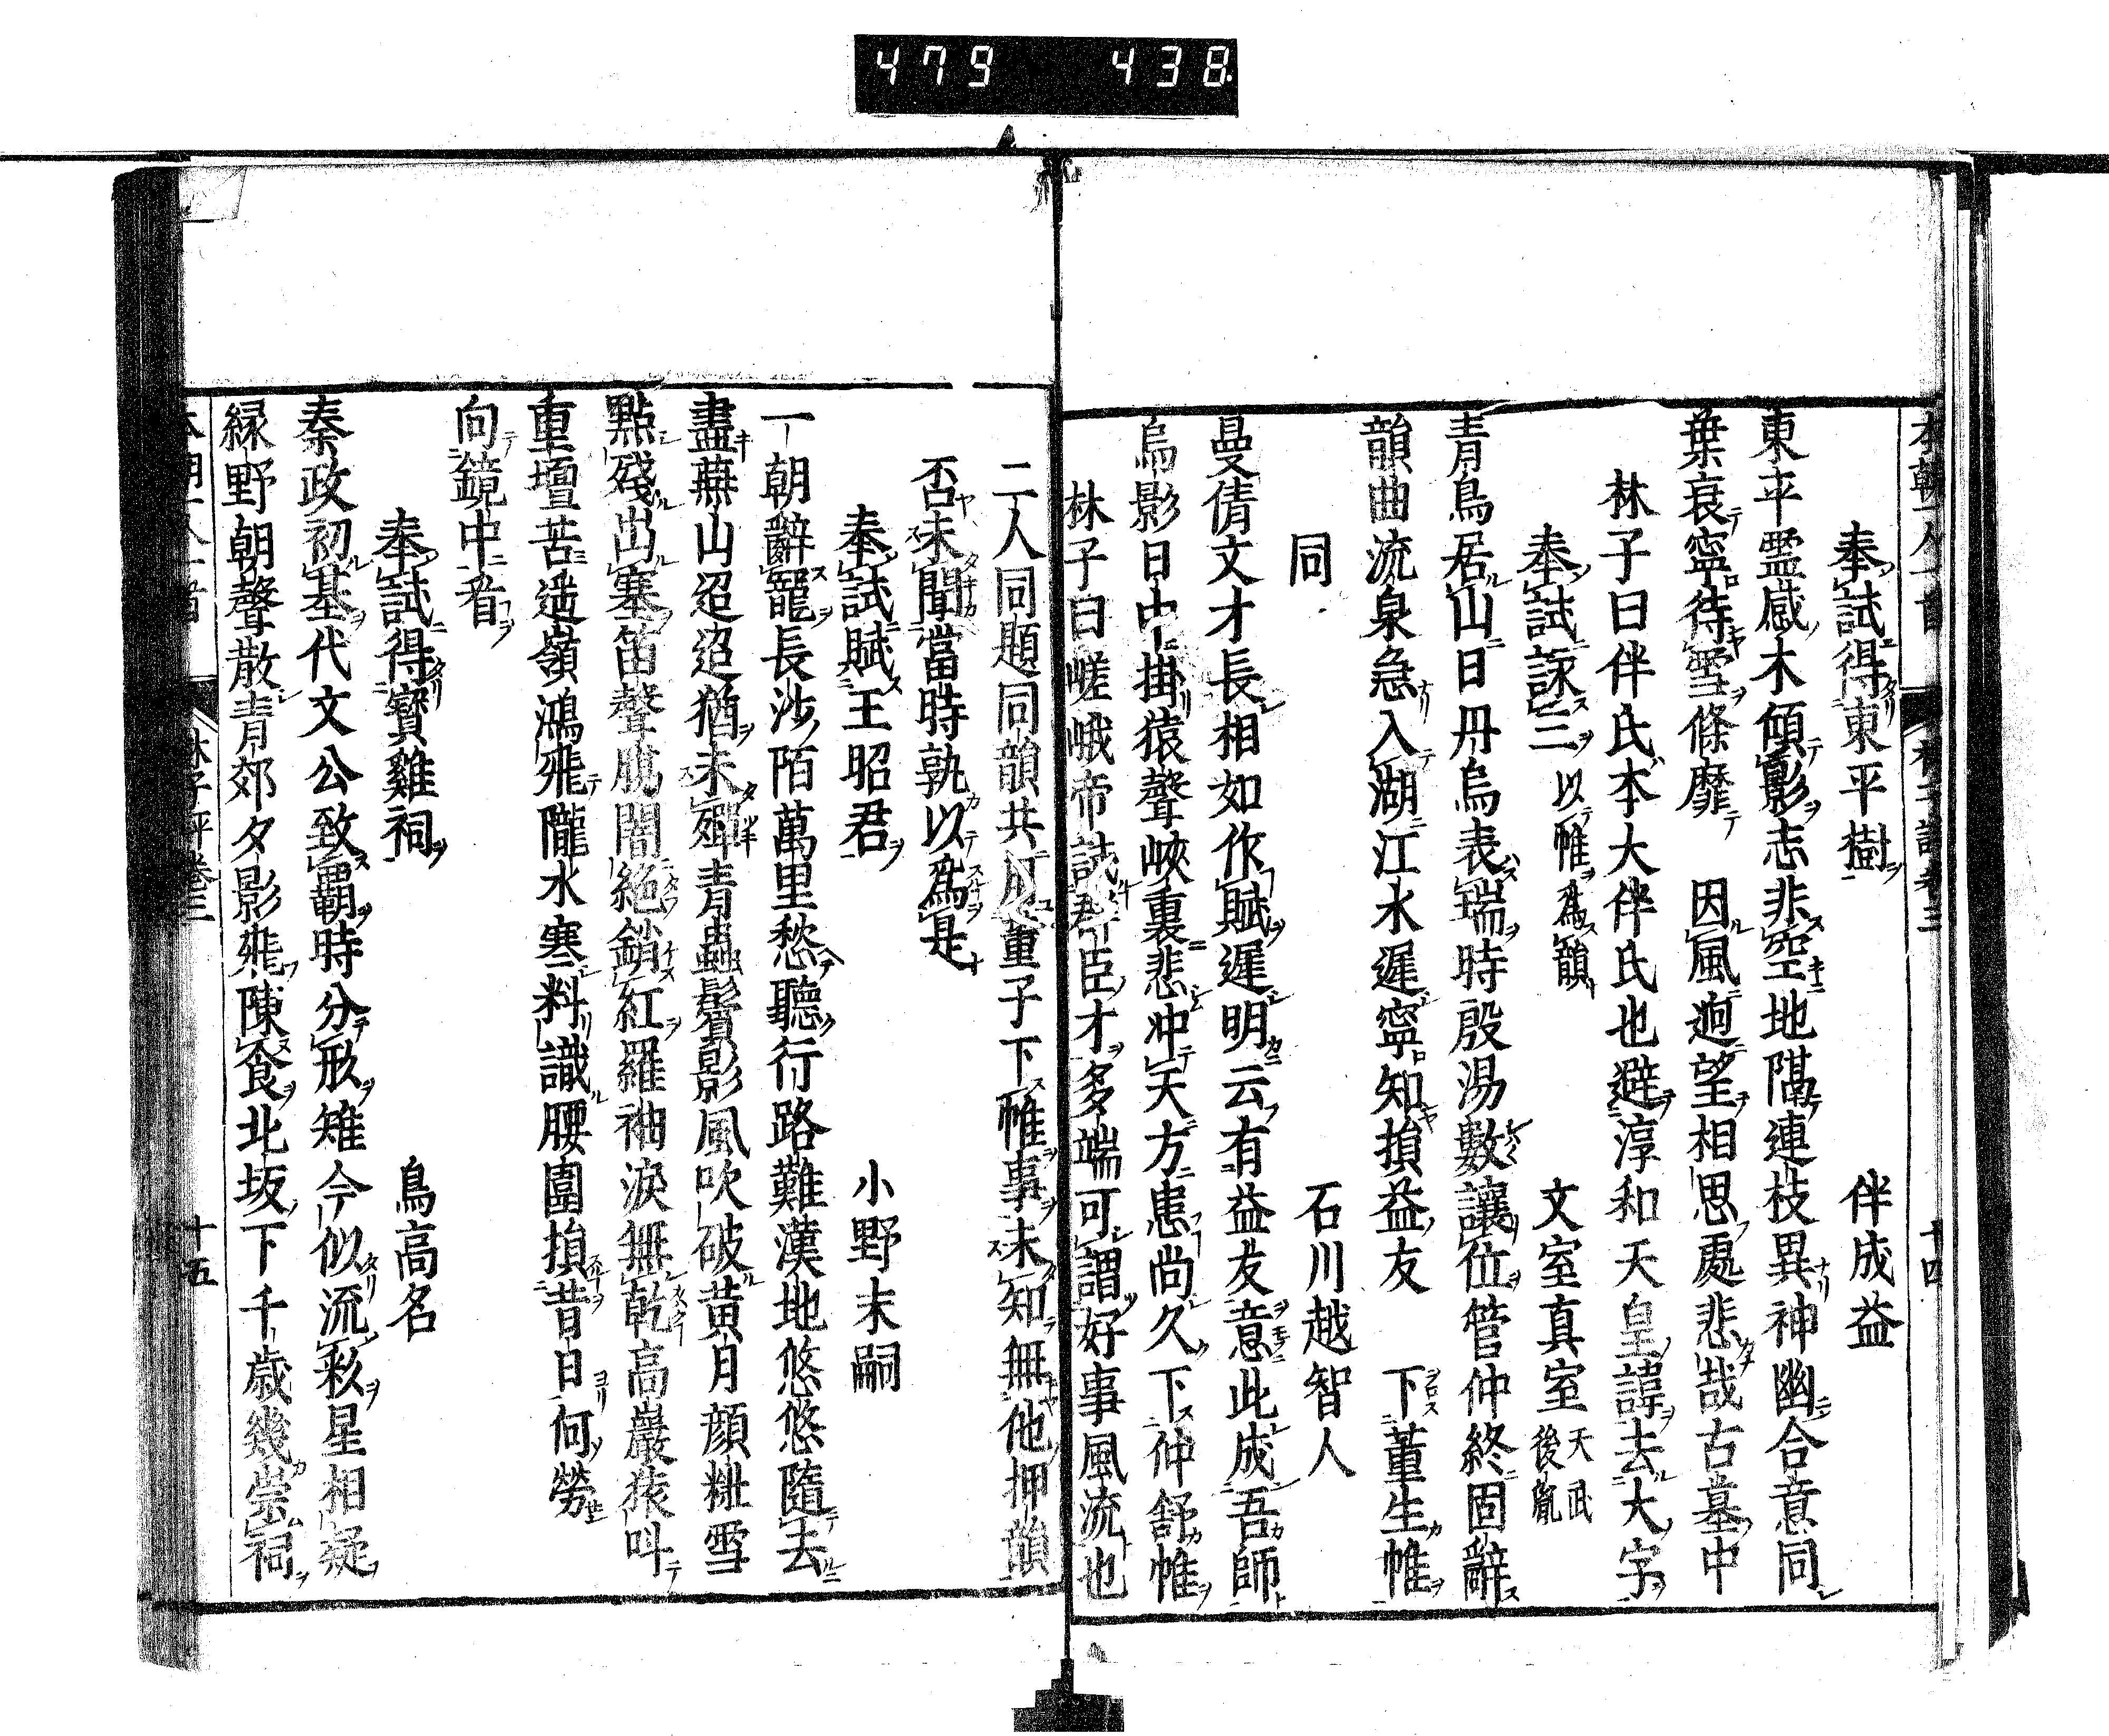 479 438
奉試得東平樹 伴成益
東平靈感木傾影志非空地隔連枝異神幽合意同
葉衰寧待雪條靡 因風迴望相思處悲哉古墓中
林子曰伴氏本大伴氏也避淳和天皇諱去大字
奉試詠三以帷爲韻 文室真室天武後胤
青鳥居山日丹烏表瑞時殷湯數讓位管仲終固辭
韻曲流泉急入湖江水遲寧知損益友 下董生帷
同 石川越智人
曼倩文才長相如作賦遲明云有益友意此成吾師
烏影日中掛猿聲峽裏悲冲天方患尚久下仲舒帷
林子曰嵯峨帝試群臣才多端可謂好事風流也
二人同題同韻共用董子下帷事未知無他押韻
否未聞當時孰以爲是
奉試賦王昭君 小野末嗣
一朝辭寵長沙陌萬里愁聽行路難漢地悠悠隨去
盡燕山迢迢猶未殫青蟲鬢影風吹破黄月顔粧雪
點殘出塞笛聲腸闇絶銷紅羅袖淚無乾高巖猿叫
重壇苦遥嶺鴻飛隴水寒料識腰圍損昔日何勞
向鏡中看
奉試得寶雞祠 鳥高名
秦政初基代文公致覇時分形雉今似流彩星相疑
緑野朝聲散青郊夕影飛陳倉北坂下千歳幾崇祠
林子評卷三 十五